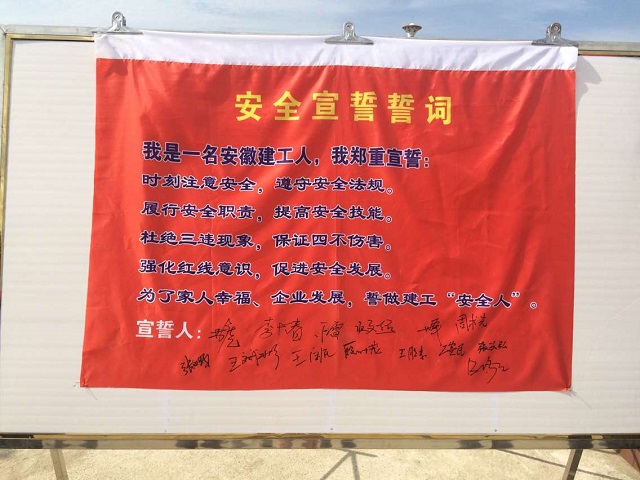 安全宣誓誓词
我是一名安徽建工人，我郑重宣誓：
时刻注意安全，遵守安全法规。
履行安全职责，提高安全技能。
杜绝三违现象，保证四不伤害。
强化红线意识，促进安全发展。
为了家人幸福、企业发展，誓做建工“安全人”。
宣誓人：